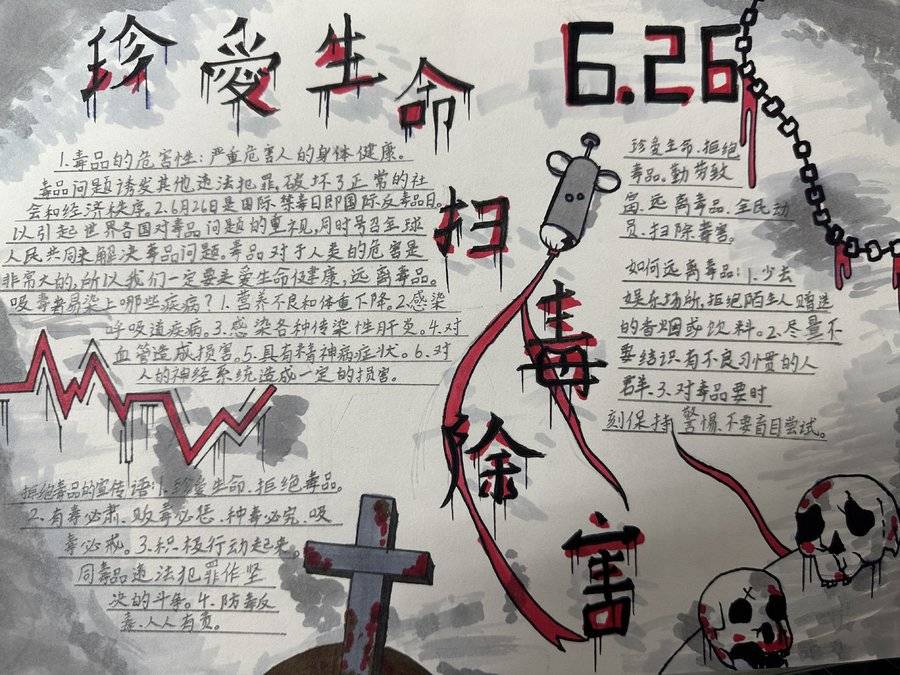 珍愛生命
6.26
1.毒品的危害性:严重危害人的身体健康。
毒品问题诱发其他违法犯罪,破坏了正常的社
会和经济秩序。2.6月26日是国际禁毒日即国际反毒品日。
以引起世界各国对毒品问题的重视,同时号召全球
人民共同来解决毒品问题,毒品对于人类的危害是
非常大的,所以我们一定要走爱生命促健康,远离毒品。
吸毒者易染上哪些疾病?1.营养不良和体重下降。2.感染
呼吸道疾病。3.感染各种传染性肝炎。4.对
血管造成损害。5.具有精神病症状。6.对
人的神经系统造成一定的损害。
扫
毒
除
害
珍爱生命、拒绝
毒品。勤劳致
富、远离毒品、全民动
员、扫除毒害。
如何远离毒品:1.少去
娱乐场所,拒绝陌生人赠送
的香烟或饮料。2.尽量不
要结识有不良习惯的人
群。3.对毒品要时
刻保持警惕、不要盲目尝试。
拒绝毒品的宣传语:1.珍爱生命、拒绝毒品。
2.有毒必肃、贩毒必惩、种毒必究、吸
毒必戒。3.积极行动起来。
同毒品违法犯罪作坚
决的斗争。4.防毒反
毒、人人有责。